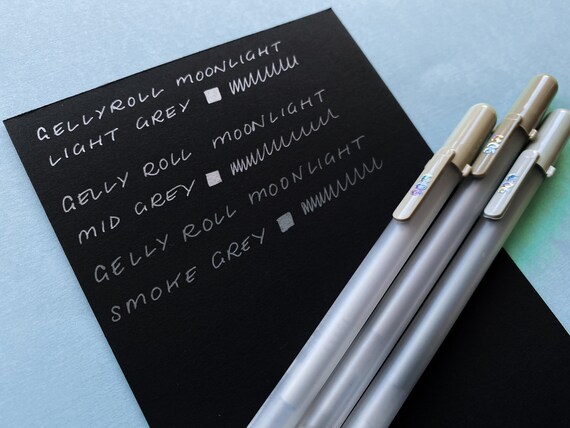 GELLYROLL MOONLIGHT
LIGHT GREY
GELLY ROLL MOONLIGHT
MID GREY
GELLY ROLL MOONLIGHT
SMOKE GREY